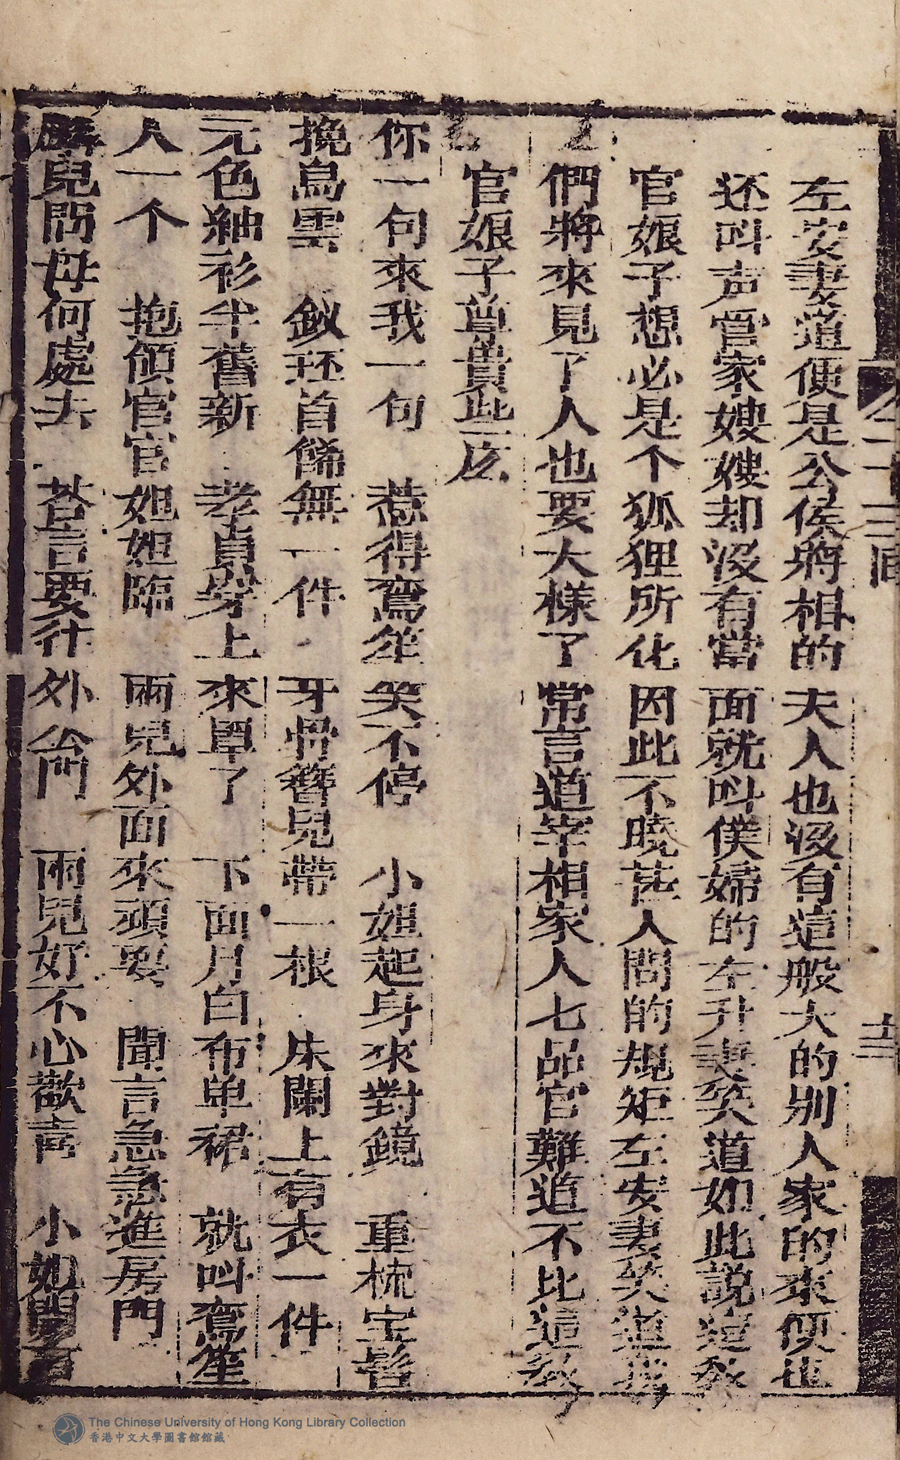 左安妻道便是公侯將相的夫人也沒有這般大的別人家的來便也
还叫声管家嫂嫂却沒有當面就叫僕婦的左升妻笑道如此説這教
官娘子想必是个狐狸所化因此不曉甚人間的規矩左安妻笑道我
們將來見了人也要大樣了常言道宰相家人七品官難道不比這教
官娘子尊貴些么
你一句來我一句 惹得鸞笙笑不停 小姐起身來對鏡 重梳宝髻
挽烏雲 釵珏首餙無一件 牙骨簪兒帶一根 床闌上有衣一件
元色紬衫半舊新 孝貞穿上來罩了 下面月白布单裙 就叫鸞笙
人一个 抱領官官姐姐臨 雨兒外面來頑耍 聞言急急進房門
兒問母何處去 荅言要往外㕔門 雨兒好不心歡喜 小姐開
全十三回
十二
The Chinese University of Hong Kong Library Collection
香港中文大學圖書館館藏